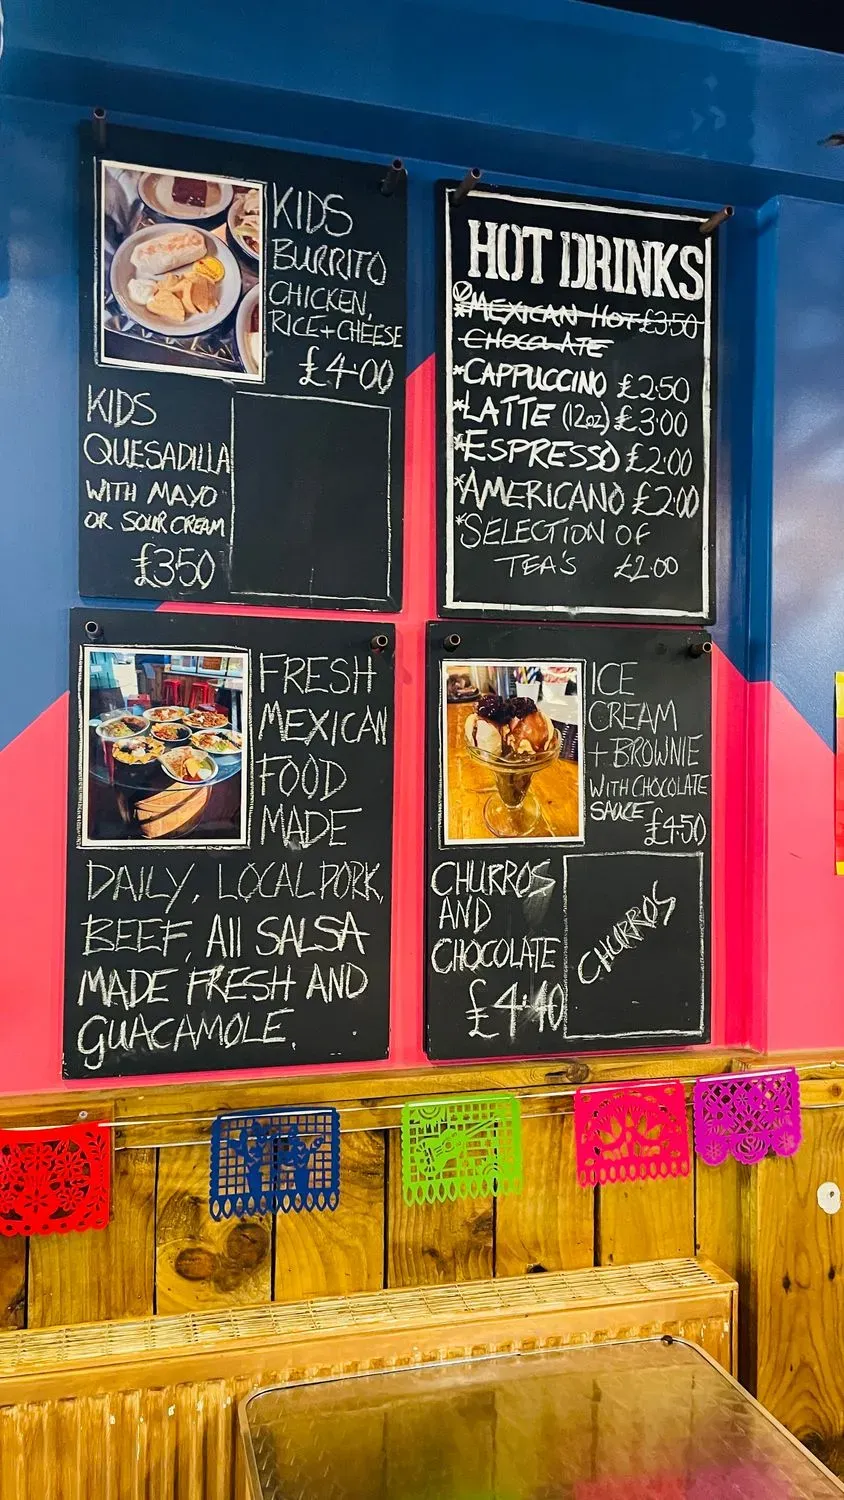 KIDS
BURRITO
CHICKEN,
RICE+CHEESE
£4·00
KIDS
QUESADILLA
WITH MAYO
OR SOUR CREAM
£350
HOT DRINKS
*MEXICAN HOT £3·50
CHOCOLATE
*CAPPUCCINO £2·50
*LATTE (12oz) £3·00
*ESPRESSO £2·00
*AMERICANO £2·00
*SELECTION OF
TEA'S £2·00
FRESH
MEXICAN
FOOD
MADE
DAILY, LOCAL PORK,
BEEF, All SALSA
MADE FRESH AND
GUACAMOLE.
ICE
CREAM
+ BROWNIE
WITH CHOCOLATE
SAUCE £4·50
CHURROS
AND
CHOCOLATE
£4·40
CHURROS